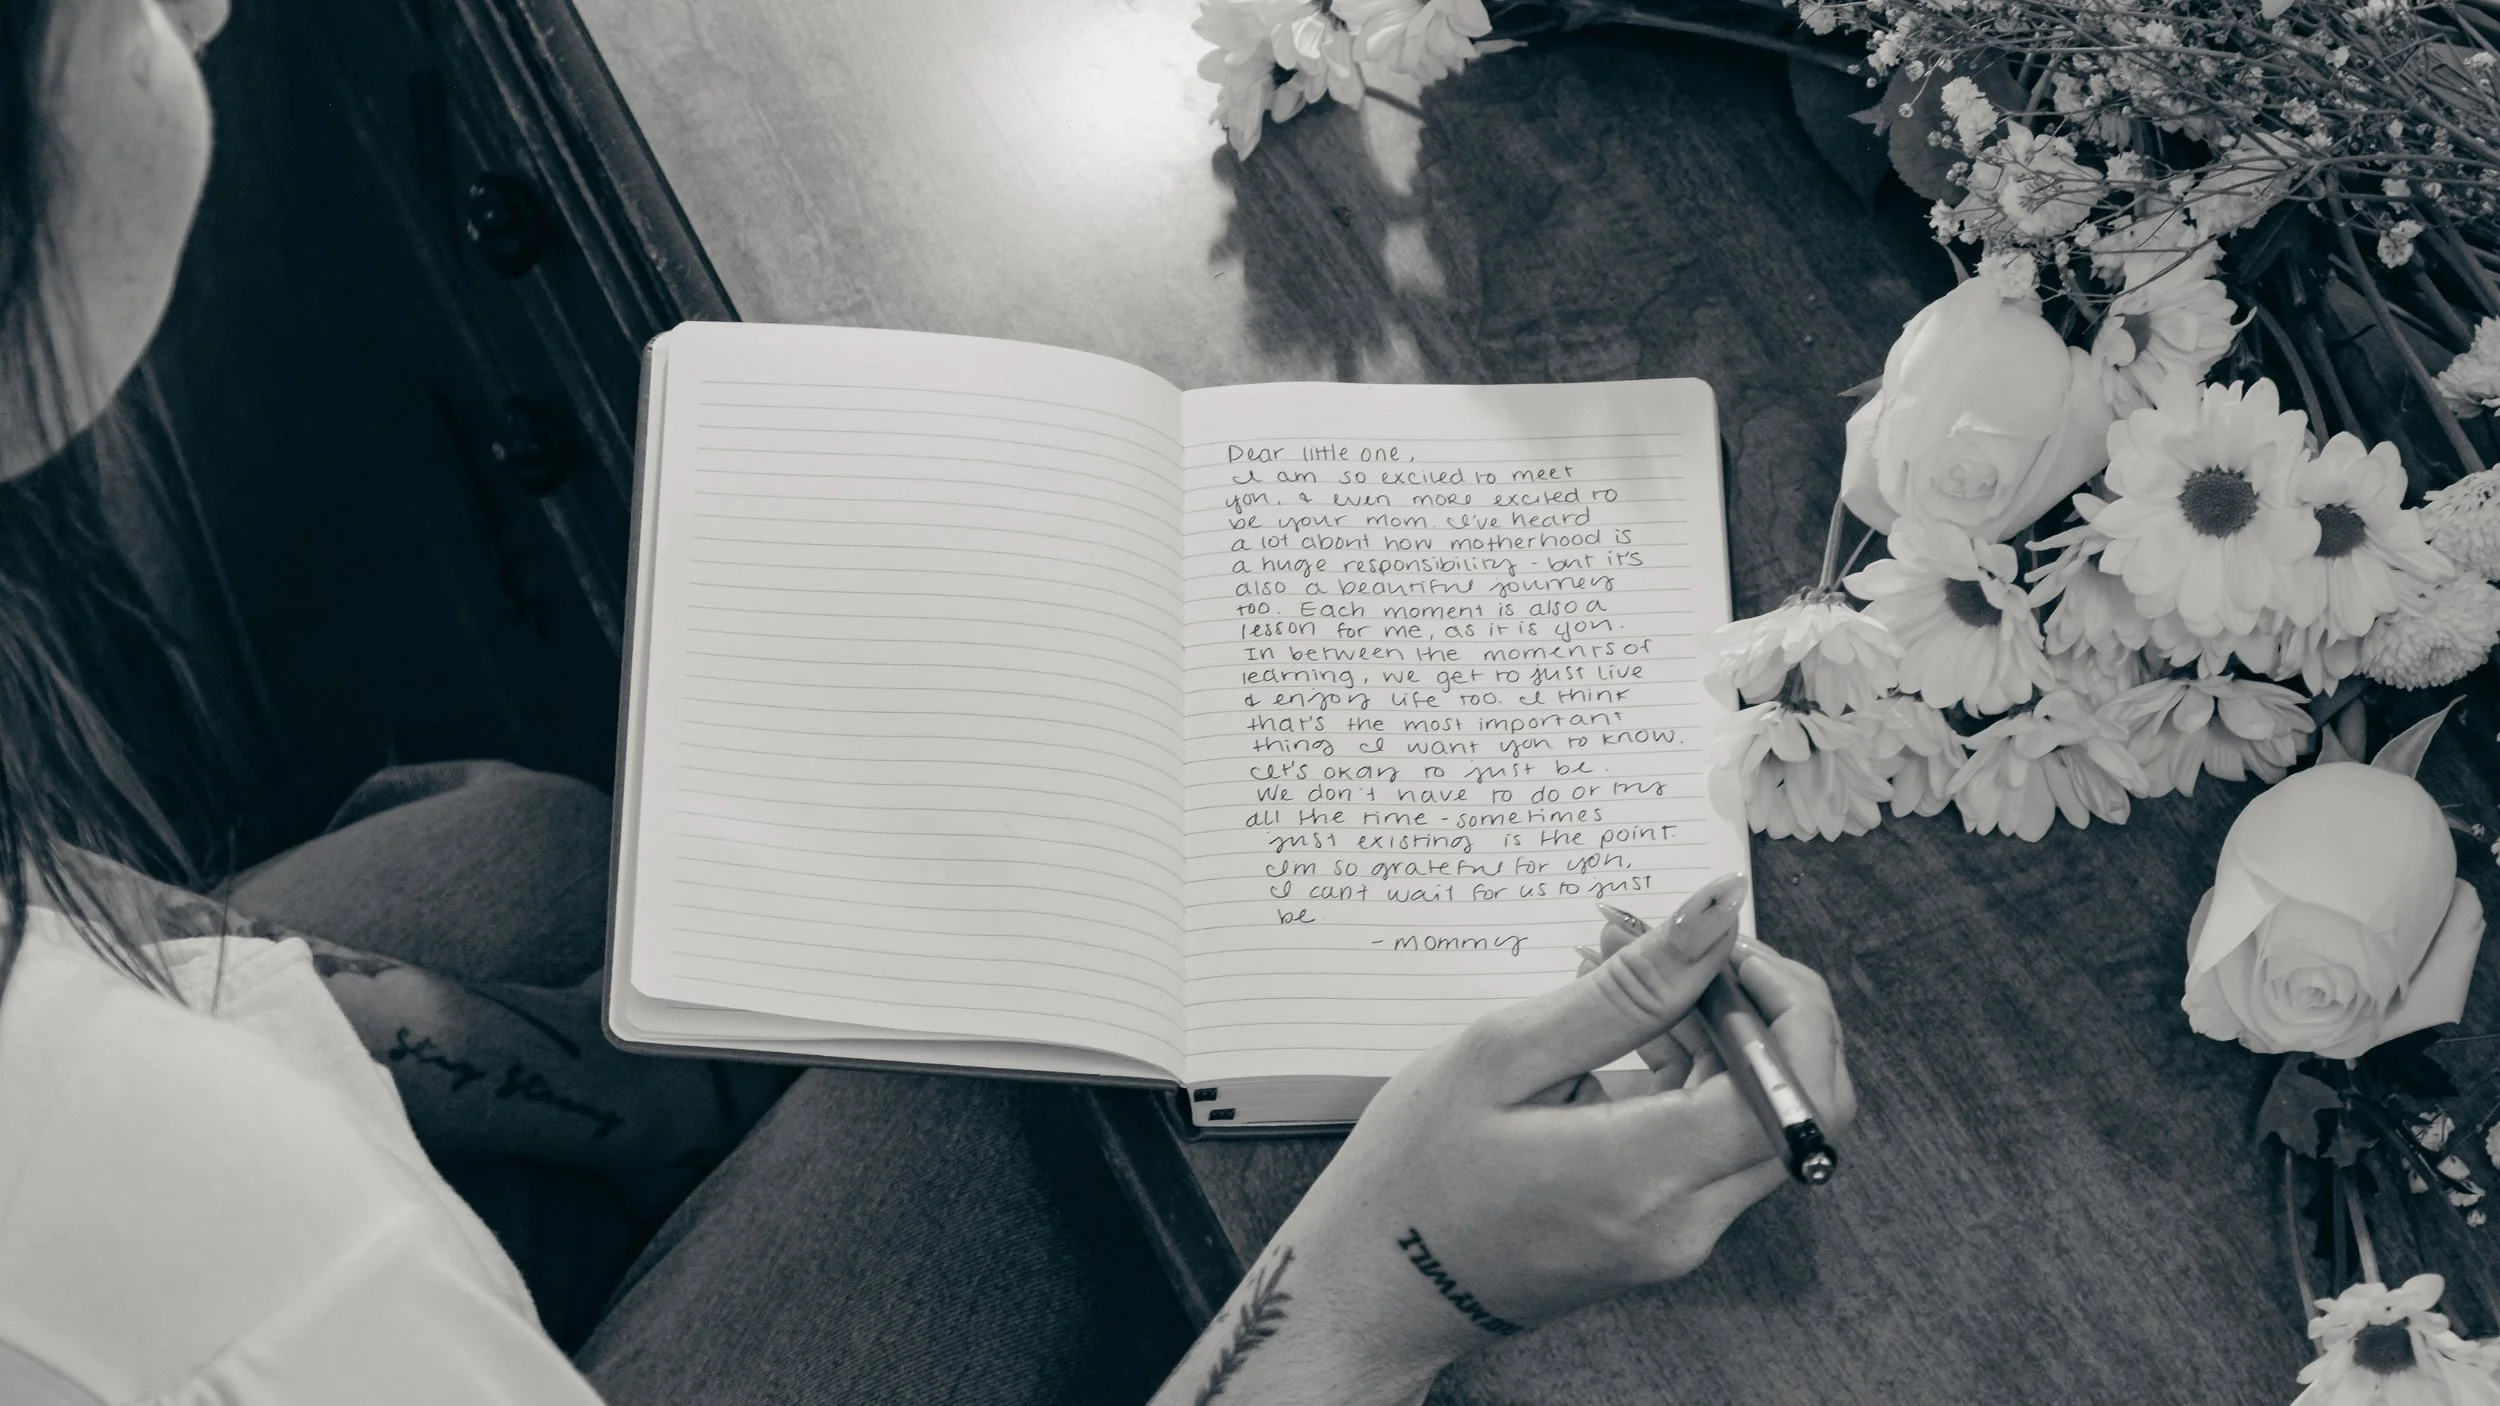 Dear little one,
I am so excited to meet
you. & even more excited to
be your mom. I've heard
a lot about how motherhood is
a huge responsibility - but it's
also a beautiful journey
too. Each moment is also a
lesson for me, as it is you.
In between the moments of
learning, we get to just live
& enjoy life too. I think
that's the most important
thing I want you to know.
Let's okay to just be.
We don't have to do or try
all the time - sometimes
just existing is the point.
I'm so grateful for you,
I can't wait for us to just
be.
- mommy